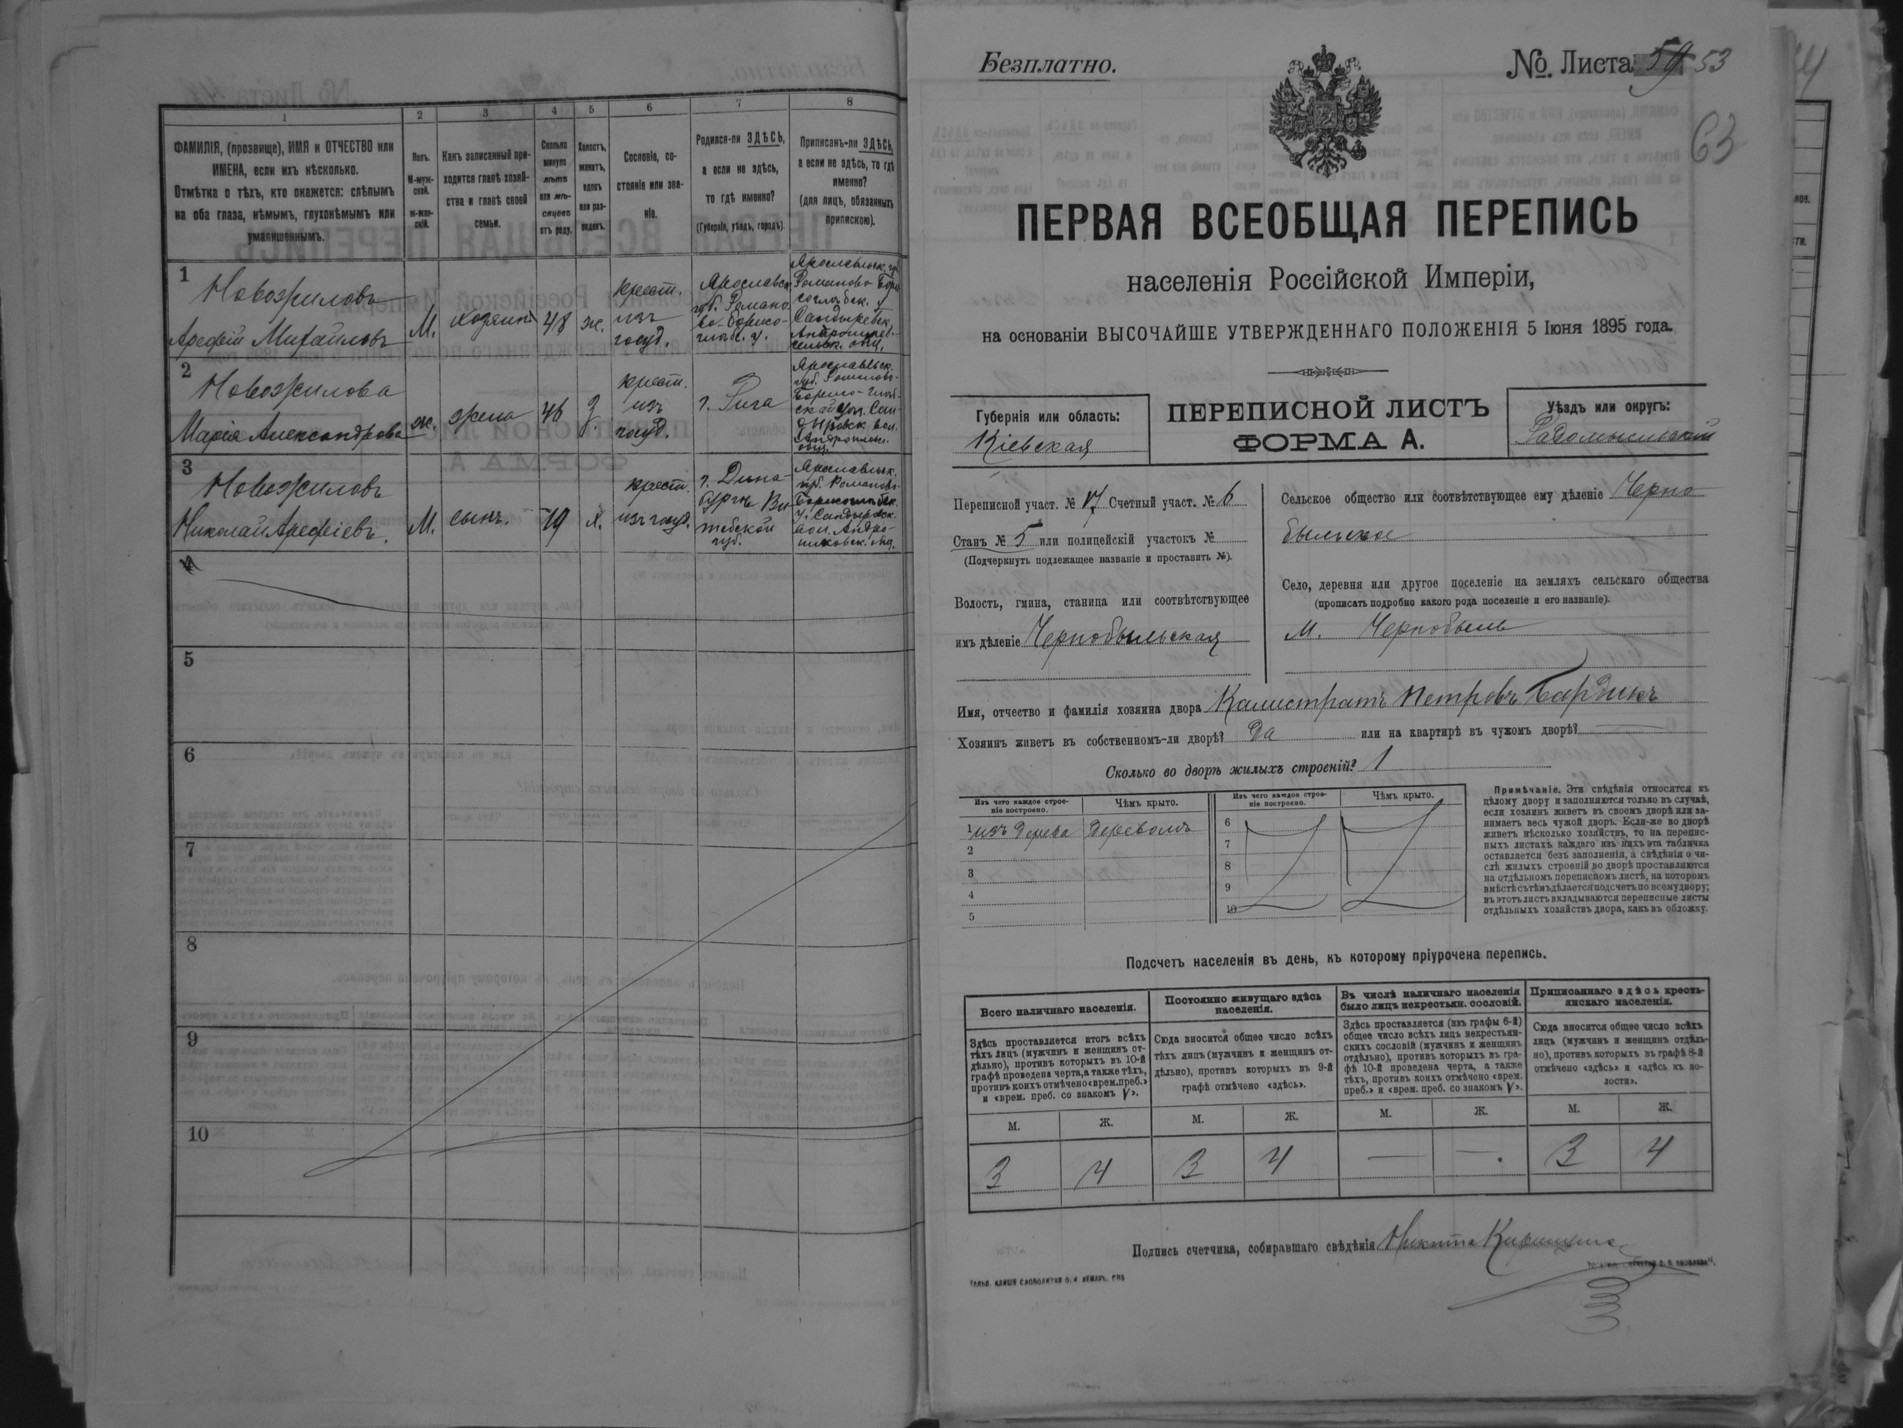 1 2 3 4 5 6 7 8
ФАМИЛІЯ, (прозвище), ИМЯ и ОТЧЕСТВО или
ИМЕНА, если ихъ нѣсколько.
Отмѣтка о тѣхъ, кто окажется: слѣпымъ
на оба глаза, нѣмымъ, глухонѣмымъ или
умалишеннымъ.
Полъ.
М-муж-
ской.
ж-жен-
скій.
Какъ записанный при-
ходится главѣ хозяй-
ства и главѣ своей
семьи.
Сколько
минуло
лѣтъ
или мѣ-
сяцевъ
отъ роду.
Холостъ,
женатъ,
вдовъ
или раз-
веденъ.
Сословіе, со-
стояніе или зва-
ніе.
Родился-ли ЗДѢСЬ,
а если не здѣсь,
то гдѣ именно?
(Губернія, уѣздъ, городъ).
Приписанъ-ли ЗДѢСЬ,
а если не здѣсь, то гдѣ
именно?
(для лицъ, обязанныхъ
припискою).
1
Новожиловъ
Арефій Михайловъ
М.
хозяинъ
48
ж.
крест.
изъ
госуд.
Ярославск.
губ. Романо
во-Борисо-
глѣбс. у.
2
Новожилова
Марія Александрова
ж.
жена
46
з.
крест.
изъ
госуд.
г. Рига
3
Новожиловъ
Николай Арефіевъ.
М.
сынъ.
19
х.
крест.
изъ госуд.
г. Дина
бургъ Ви
тебской
губ.
4
5
6
7
8
9
10
Безплатно.
№. Листа 53
63
ПЕРВАЯ ВСЕОБЩАЯ ПЕРЕПИСЬ
населенія Россійской Имперіи,
на основаніи ВЫСОЧАЙШЕ УТВЕРЖДЕННАГО ПОЛОЖЕНІЯ 5 Іюня 1895 года.
Губернія или область:
Кіевская
ПЕРЕПИСНОЙ ЛИСТЪ
ФОРМА А.
Уѣздъ или округъ:
Радомысльскій
Переписной участ. № Счетный участ. № 6
Станъ № 5 или полицейскій участокъ №
(Подчеркнуть подлежащее названіе и проставить №).
Волость, гмина, станица или соотвѣтствующее
имъ дѣленіе Чернобыльская
Сельское общество или соотвѣтствующее ему дѣленіе Черно
быльское
Село, деревня или другое поселеніе на земляхъ сельскаго общества
(прописать подробно какого рода поселеніе и его названіе).
М. Чернобыль
Имя, отчество и фамилія хозяина двора Калистратъ Петровъ
Хозяинъ живетъ въ собственномъ-ли дворѣ? Да или на квартирѣ въ чужомъ дворѣ?
Сколько во дворѣ жилыхъ строеній? 1
Изъ чего каждое строе-
ніе построено.
Чѣмъ крыто.
Изъ чего каждое строе-
ніе построено.
Чѣмъ крыто.
1 изъ дерева деревомъ
2
3
4
5
6
7
8
9
10
Примѣчаніе. Эти свѣдѣнія относятся къ
цѣлому двору и заполняются только въ случаѣ,
если хозяинъ живетъ въ своемъ дворѣ или за-
нимаетъ весь чужой дворъ. Если-же во дворѣ
живетъ нѣсколько хозяйствъ, то на перепис-
ныхъ листахъ каждаго изъ нихъ эта табличка
оставляется безъ заполненія, а свѣдѣнія о чи-
слѣ жилыхъ строеній во дворѣ проставляются
на отдѣльномъ переписномъ листѣ, на которомъ
вмѣстѣ съ тѣмъ дѣлается подсчетъ по всему двору;
въ этотъ листъ вкладываются переписные листы
отдѣльныхъ хозяйствъ двора, какъ въ обложку.
Подсчетъ населенія въ день, къ которому пріурочена перепись.
Всего наличнаго населенія.
Здѣсь проставляется итогъ всѣхъ
тѣхъ лицъ (мужчинъ и женщинъ от-
дѣльно), противъ которыхъ въ 10-й
графѣ проведена черта, а также тѣхъ,
противъ коихъ отмѣчено «врем. преб.»
и «врем. преб. со знакомъ V».
Постоянно живущаго здѣсь
населенія.
Сюда вносится общее число всѣхъ
тѣхъ лицъ (мужчинъ и женщинъ от-
дѣльно), противъ которыхъ въ 9-й
графѣ отмѣчено «здѣсь».
Въ числѣ наличнаго населенія
было лицъ некрестьян. сословій.
Здѣсь проставляется (изъ графы 6-й)
общее число всѣхъ лицъ некрестьян-
скихъ сословій (мужчинъ и женщинъ
отдѣльно), противъ которыхъ въ гра-
фѣ 10-й проведена черта, а также
тѣхъ, противъ коихъ отмѣчено «врем.
преб.» и «врем. преб. со знакомъ V».
Приписаннаго здѣсь кресть-
янскаго населенія.
Сюда вносится общее число всѣхъ
лицъ (мужчинъ и женщинъ отдѣль-
но), противъ которыхъ въ графѣ 8-й
отмѣчено «здѣсь» и «здѣсь въ во-
лости».
М. Ж. М. Ж. М. Ж. М. Ж.
3 4 3 4 — — 3 4
Подпись счетчика, собиравшаго свѣдѣнія Никита